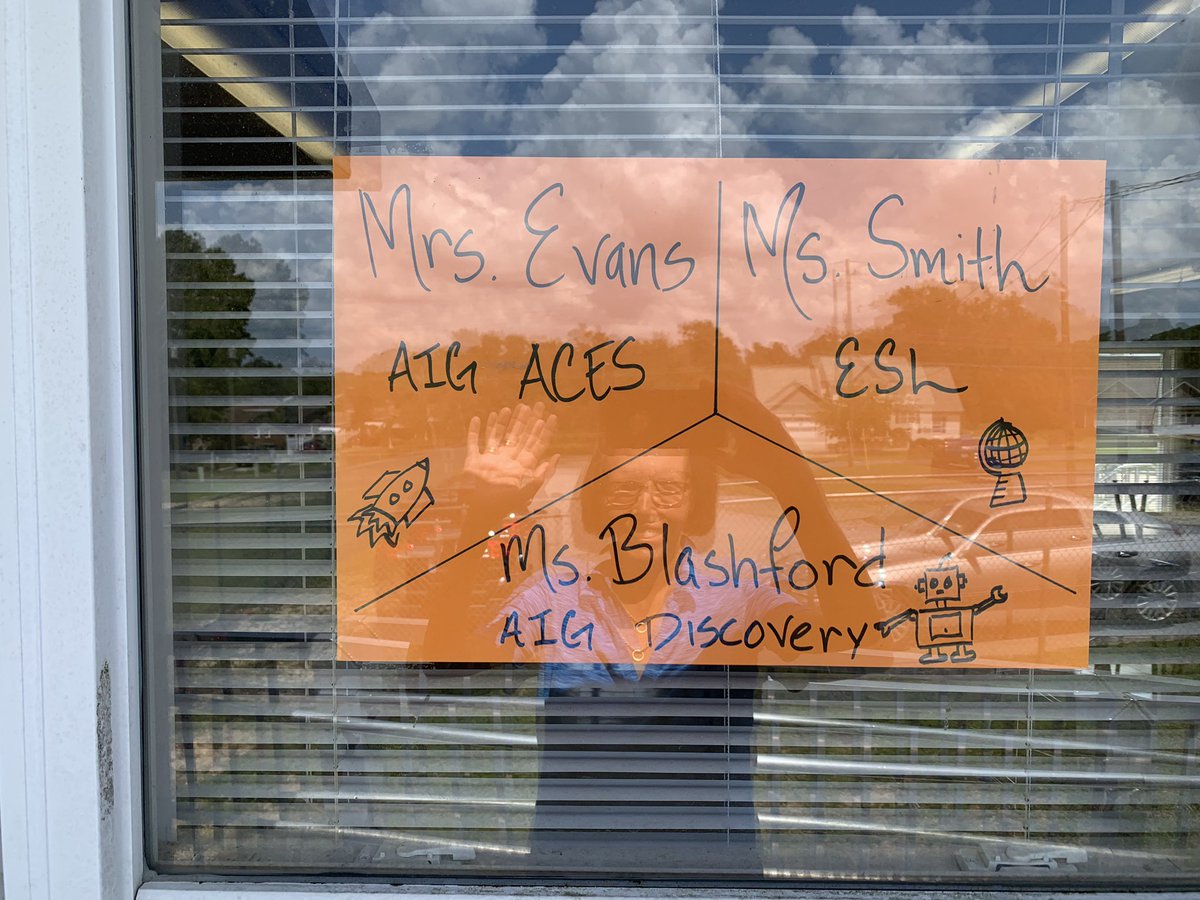 Mrs. Evans
AIG ACES
Ms. Smith
ESL
Ms. Blashford
AIG Discovery